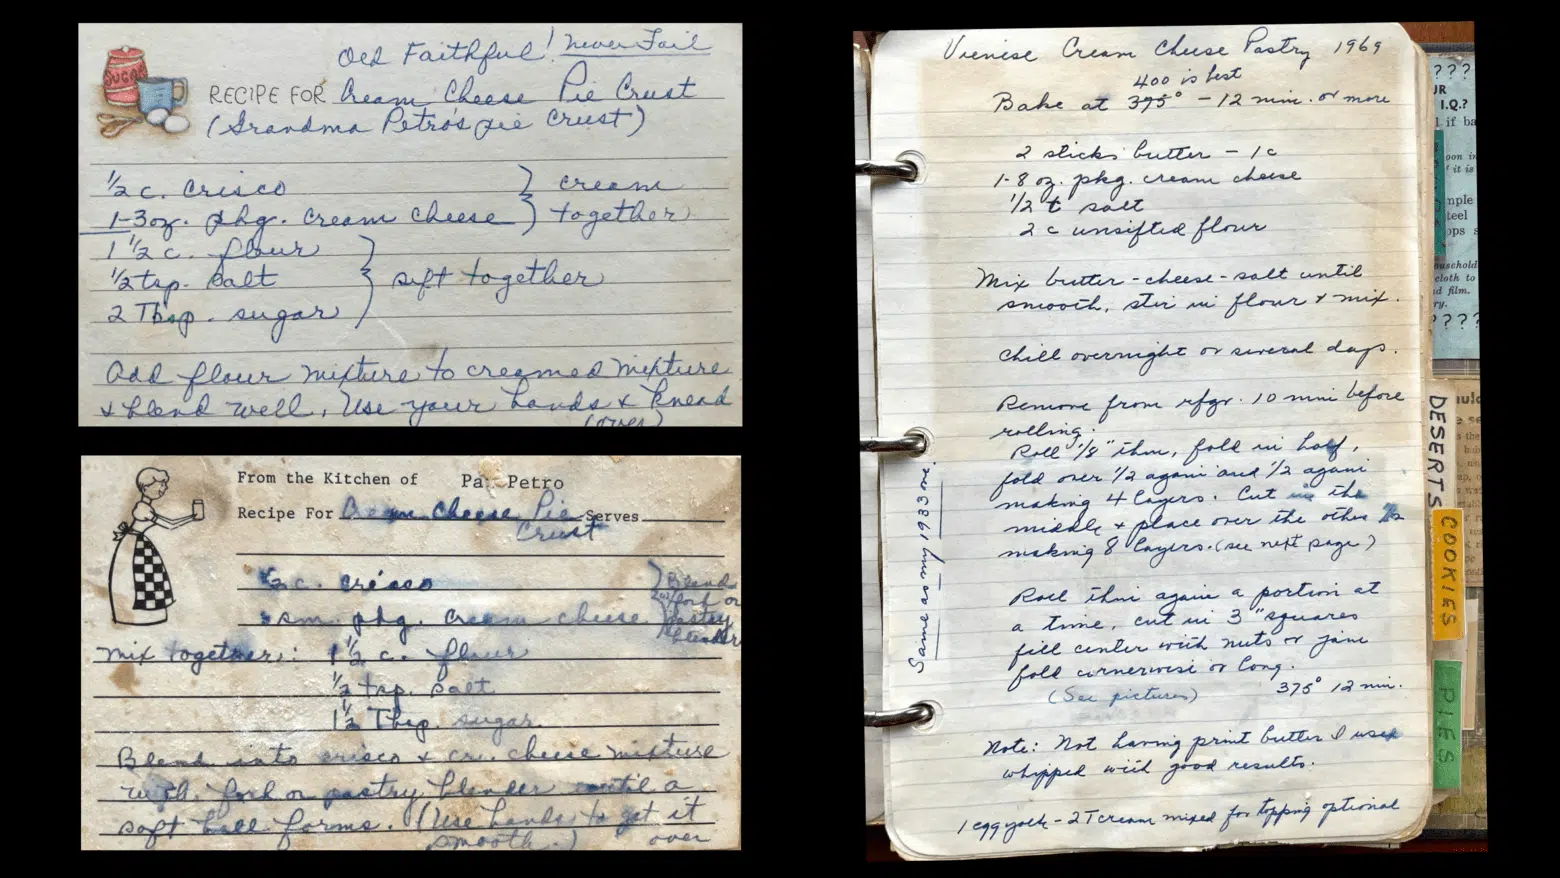 Old Faithful! Never Fail
SUGAR
RECIPE FOR Cream Cheese Pie Crust
(Grandma Petro's pie crust)
1/2 c. crisco } cream
1-3oz. pkg. cream cheese } together
1 1/2 c. flour
1/2 tsp. salt } sift together
2 Tbsp. sugar
Add flour mixture to creamed mixture
& blend well. Use your hands & knead
(over)
From the Kitchen of Pat Petro
Recipe For Cream Cheese Pie Serves
Crust
1/2 c. crisco } Blend
w/fork or
sm. pkg. cream cheese pastry
blender
Mix together: 1 1/2 c. flour
1/2 tsp. salt
1 1/2 Tbsp. sugar
Blend into crisco & cr. cheese mixture
with fork or pastry blender until a
soft ball forms. (Use hands to get it
smooth.) over
Vienise Cream Cheese Pastry 1969
400 is best
Bake at 375° - 12 min. or more
2 sticks butter - 1c
1-8 oz. pkg. cream cheese
1/2 t salt
2 c unsifted flour
Mix butter-cheese-salt until
smooth, stir in flour & mix.
Chill overnight or several days.
Remove from rfgr. 10 min before
rolling.
Roll 1/8" thin, fold in half,
fold over 1/2 again and 1/2 again
making 4 layers. Cut in the
middle & place over the other 1/2
making 8 layers. (see next page)
Roll thin again a portion at
a time, cut in 3" squares
fill center with nuts or jam
fold cornerwise or long.
(See pictures) 375° 12 min.
Note: Not having print butter I used
whipped with good results.
1 egg yolk - 2 T cream mixed for topping optional
Same as my 1933 one.
DESERTS
COOKIES
PIES
???
UR
I.Q.?
if ba
oon in
it is
mple
teel
ops s
ousehold
cloth to
d film.
ry.
????